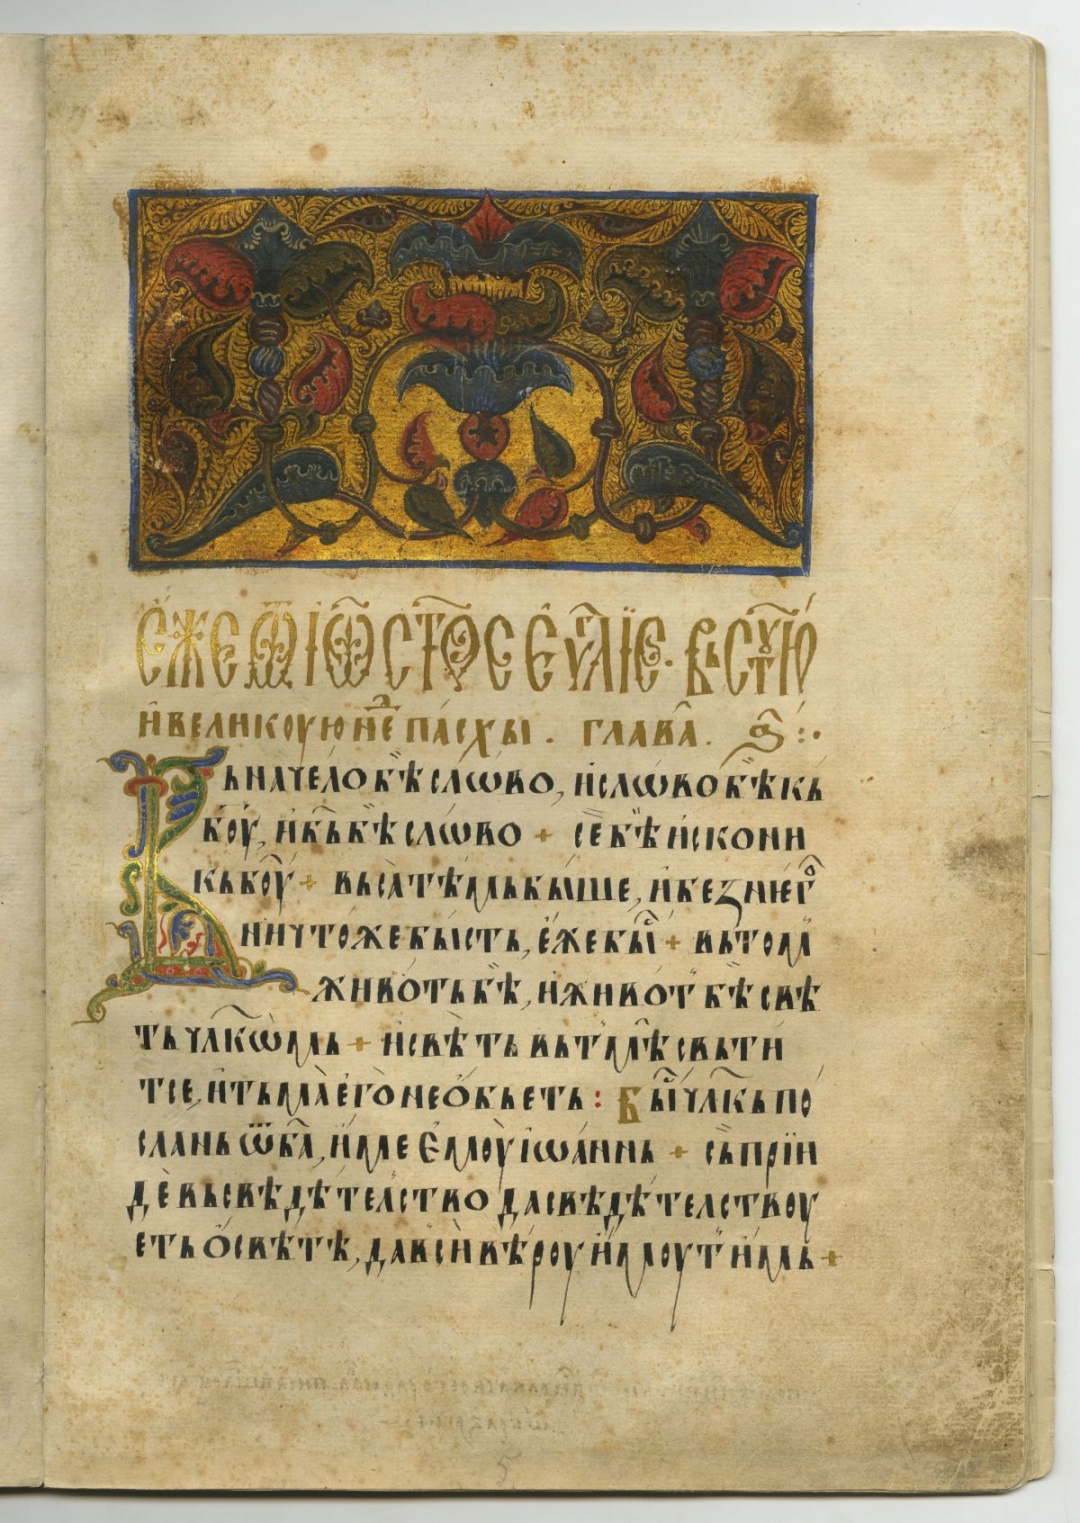 Є҆́же ѿ і҆ѡ҃ ст҃ое є҆ѵⷢ҇лїе. въ ст҃ꙋю
и҆ великоую нⷣе҃ пасхы. глава̑. а҃ :·
Въначелобѣ слѡво, и҆слѡвобѣкъ
б҃оу, и҆б҃ъбѣслѡво + се бѣ и҆скони
къбоу҃ + въсатѣмьбыше, и҆безнⸯегоⷪ
ничтоже бысть, є҆́же быⷭ + въ томⸯ
животь бѣ, и҆живоⷮ бѣ свѣ
ть чл҃кѡмь + и҆свѣть вь тмѣ свьти
тсе, и҆тьма є҆го не ѡ҆бьеть : Быⷭ чл҃кь по
слань ѿ б҃а, и҆ме є҆моу і҆ѡаннь + съ прїи
де въсвѣдѣтелство да свѣдѣтелствоу
еть ѡ҆ свѣтѣ, да вси вѣроу и҆моуⷮ и҆мь +
5